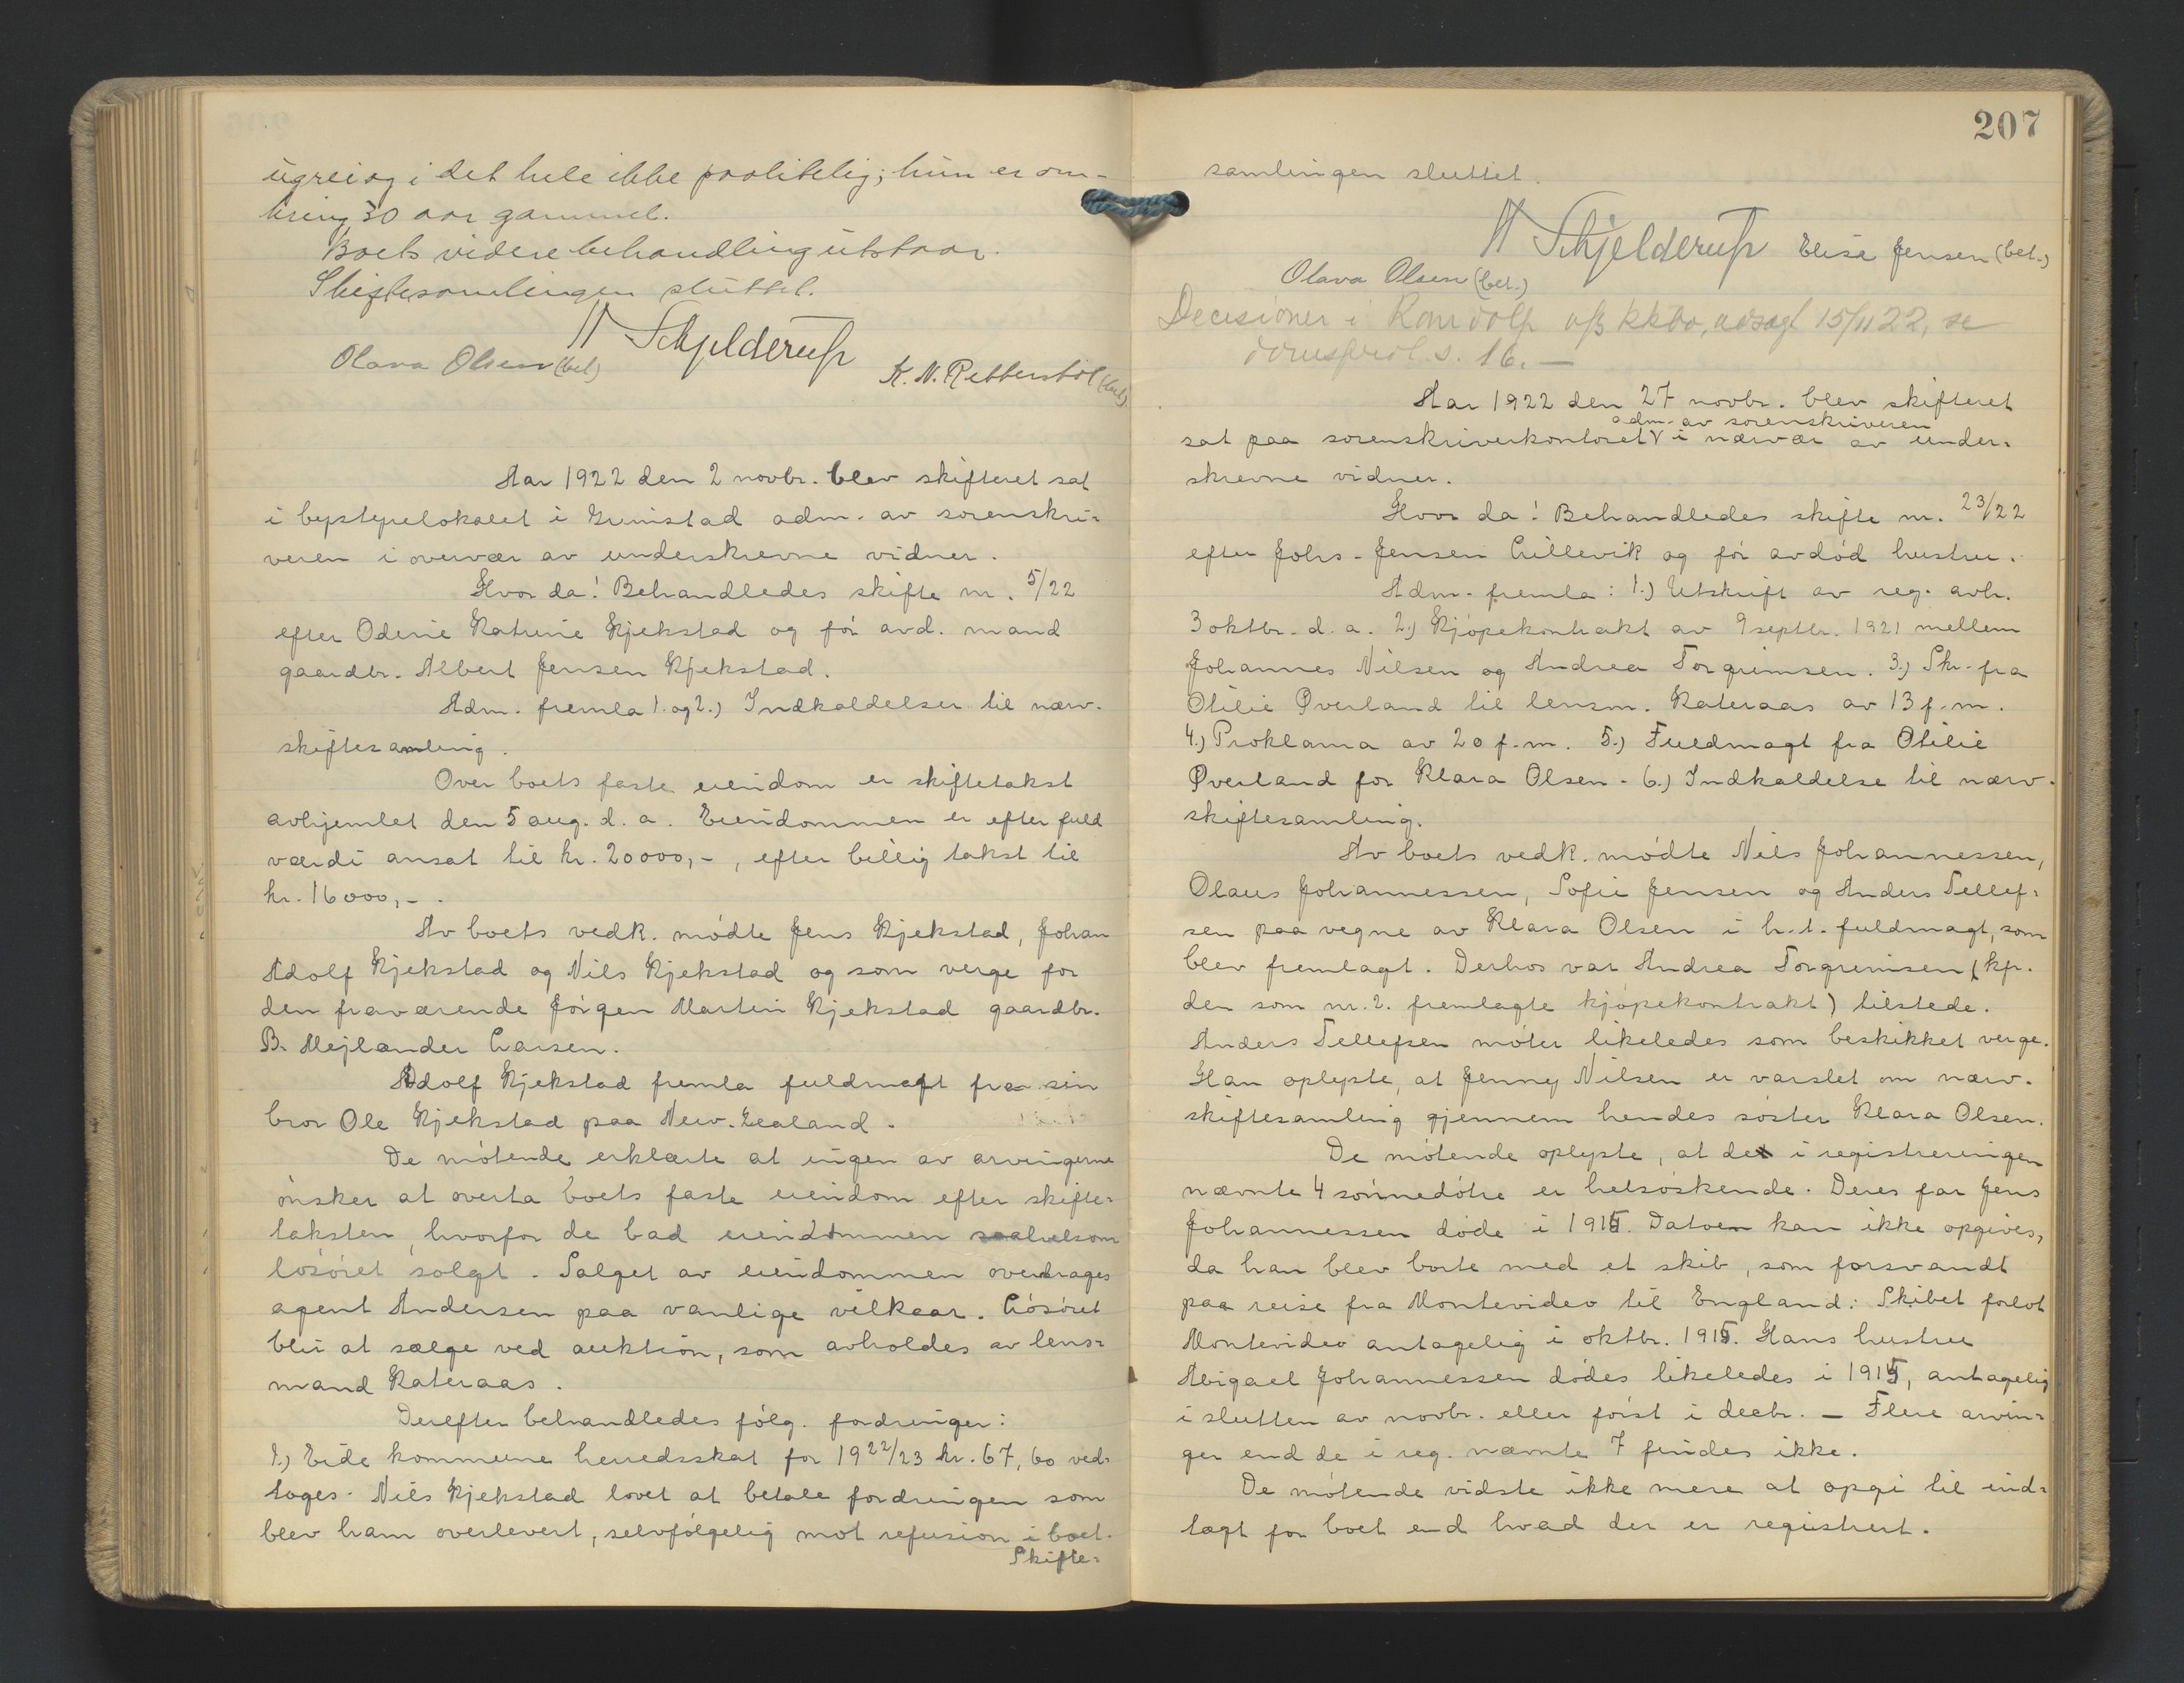 ugrei og i det hele ikke paalitelig; hun er om-
kring 30 aar gammel.
Boets videre behandling utstaar.
Skiftesamlingen sluttet.
Schjelderup
Olava Olsen (bet)
K. N. Rettersböl (bet).
Aar 1922 den 2 novbr. blev skifteret sat
i bystyrelokalet i Grimstad adm. av sorenskri=
veren i overvær av underskrevne vidner.
Hvor da! Behandledes skifte nr. 5/22
efter Odine Katrine Kjekstad og før avd. mand
gaardbr. Albert Jensen Kjekstad.
Adm. fremla 1. og 2.) Indkaldelser til nærv.
skiftesamling.
Over boets faste eiendom er skiftetakst
avhjemlet den 5 aug. d. a. Eiendommen er efter fuld
værdi ansat til kr. 20000,-, efter billig takst til
kr. 16000,-.
Av boets vedk. mødte Jens Kjekstad, Johan
Adolf Kjekstad og Nils Kjekstad og som verge for
den fraværende Jørgen Martin Kjekstad gaardbr.
B. Mejlænder Larsen.
Adolf Kjekstad fremla fuldmagt fra sin
bror Ole Kjekstad paa New-Zealand.
De møtende erklærte at ingen av arvingerne
ønsker at overta boets faste eiendom efter skifte=
taksten, hvorfor de bad eiendommen saavelsom
løsøret solgt. Salget av eiendommen overdrages
agent Andersen paa vanlige vilkaar. Løsøret
blir at sælge ved auktion, som avholdes av lens=
mand Kateraas.
Derefter behandledes følg. fordringer:
1.) Eide kommune herredsskat for 1922/23 kr. 67,60 ved=
toges. Nils Kjekstad lovet at betale fordringen som
blev ham overlevert, selvfølgelig mot refusion i boet.
Skifte=
207
samlingen sluttet.
Schjelderup
Elise Jensen (bet.)
Olava Olsen (bet.)
Decisioner i Randolf kkbo, avsagt 15/11 22, se
domsprot. s. 16.-
Aar 1922 den 27 novbr. blev skifteret
adm. av sorenskriveren
sat paa sorenskriverkontoret V i nærvær av under=
skrevne vidner.
Hvor da! Behandledes skifte nr. 23/22
efter Johs. Jensen Lillevik og før avdød hustru.
Adm. fremla: 1.) Utskrift av reg. avh.
3 oktbr. d. a. 2.) Kjøpekontrakt av 9 septbr. 1921 mellem
Johannes Nilsen og Andrea Torgrimsen. 3.) Skr. fra
Otilie Øverland til lensm. Kateraas av 13 f. m.
4.) Proklama av 20 f. m. 5.) Fuldmagt fra Otilie
Øverland for Klara Olsen. 6.) Indkaldelse til nærv.
skiftesamling.
Av boets vedk. mødte Nils Johannessen,
Olaus Johannessen, Sofie Jensen og Anders Tellef=
sen paa vegne av Klara Olsen i h. t. fuldmagt, som
blev fremlagt. Derhos var Andrea Torgrimsen (kfr.
den som nr. 2. fremlagte kjøpekontrakt) tilstede.
Anders Tellefsen møter likeledes som beskikket verge.
Han oplyste, at Jenny Nilsen er varslet om nærv.
skiftesamling gjennem hendes søster Klara Olsen.
De møtende oplyste, at de i registreringen
nævnte 4 sønnedøtre er helsøskende. Deres far Jens
Johannessen døde i 1915. Datoen kan ikke opgives,
da han blev borte med et skib, som forsvandt
paa reise fra Montevideo til England: Skibet forlot
Montevideo antagelig i oktbr. 1915. Hans hustru
Abigael Johannessen dødes likeledes i 1915, antagelig
i slutten av novbr. eller først i decbr. - Flere arvin=
ger end de i reg. nævnte 7 findes ikke.
De møtende vidste ikke mere at opgi til ind=
tægt for boet end hvad der er registrert.